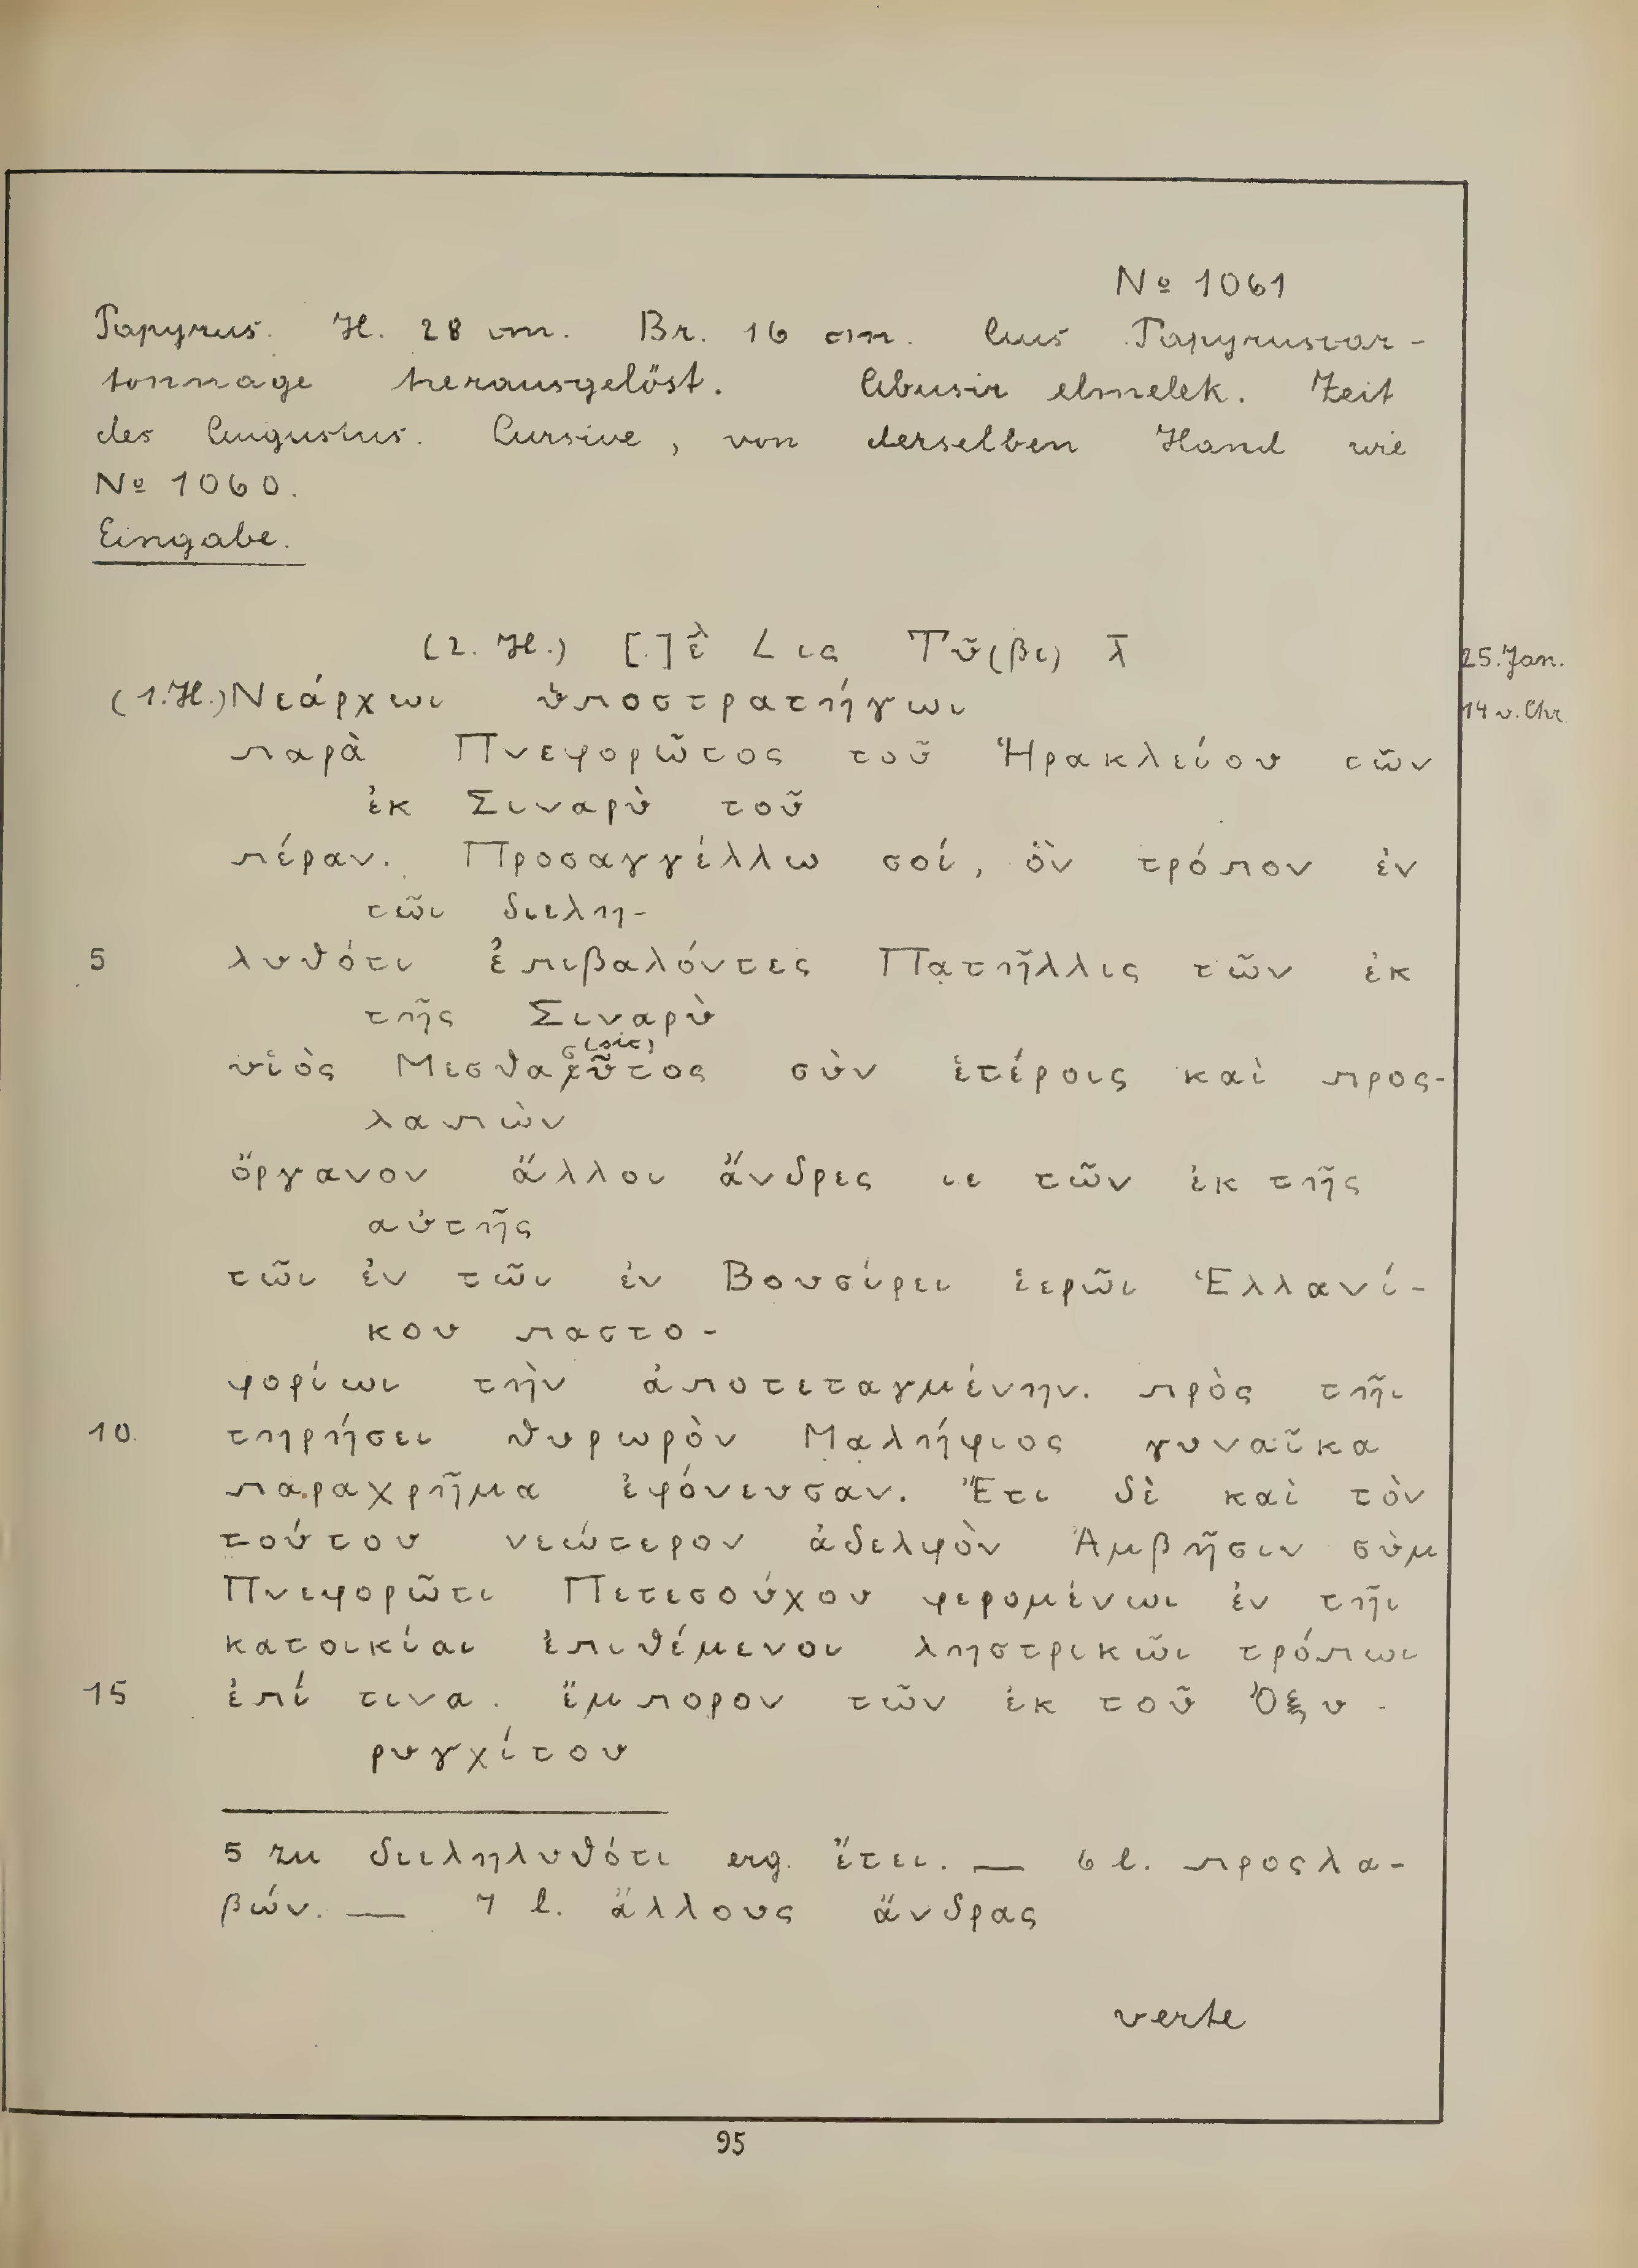 № 1061
Papyrus. H. 28 cm. Br. 16 cm. Aus Papyruscar-
tonnage herausgelöst. Abusir elmelek. Zeit
des Augustus. Cursive, von derselben Hand wie
№ 1060.
Eingabe.
(2. H.) [.]ὲλ L ις Τῦ(βι) λ̄
25. Jan.
(1. H.) Νεάρχωι ὑποστρατήγωι
14 v. Chr.
παρὰ Πνεφορῶτος τοῦ Ἡρακλείου τῶν
ἐκ Σιναρὺ τοῦ
πέραν. Προσαγγέλλω σοί, ὃν τρόπον ἐν
τῶι διελη-
5 λυθότι ἐπιβαλόντες Πατῆλλις τῶν ἐκ
τῆς Σιναρὺ
σ (sic)
υἱὸς Μεσθαρῦτος σὺν ἑτέροις καὶ προς-
λαπὼν
ὄργανον ἄλλοι ἄνδρες ιε τῶν ἐκ τῆς
αὐτῆς
τῶι ἐν τῶι ἐν Βουσίρει ἱερῶι Ἑλλανί-
κου παστο-
φορίωι τὴν ἀποτεταγμένην. πρὸς τῆι
10 τηρήσει θυρωρὸν Μαλήφιος γυναῖκα
παραχρῆμα ἐφόνευσαν. Ἔτι δὲ καὶ τὸν
τούτου νεώτερον ἀδελφὸν Ἀμβῆσιν σὺμ
Πνεφορῶτι Πετεσούχου φερομένωι ἐν τῆι
κατοικίαι ἐπιθέμενοι ληστρικῶι τρόπωι
15 ἐπί τινα. ἔμπορον τῶν ἐκ τοῦ Ὀξυ-
ρυγχίτου
5 zu διεληλυθότι erg. ἔτει. — 6 l. προςλα-
βών. — 7 l. ἄλλους ἄνδρας
verte
95